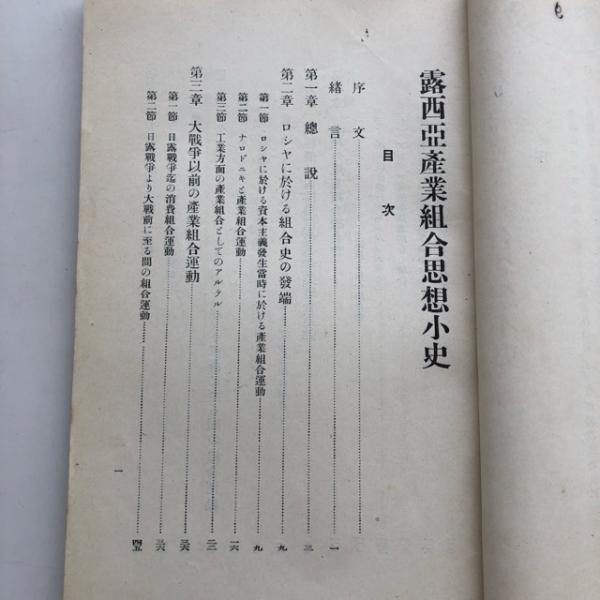 露西亞產業組合思想小史
目次
序文
緒言……一
第一章 總說……三
第二章 ロシヤに於ける組合史の發端……九
第一節 ロシヤに於ける資本主義發生當時に於ける產業組合運動……九
第二節 ナロドニキと產業組合運動……一六
第三節 工業方面の產業組合としてのアルテル……二三
第三章 大戰爭以前の產業組合運動……三六
第一節 日露戰爭迄の消費組合運動……三六
第二節 日露戰爭より大戰前に至る間の組合運動……四五
一